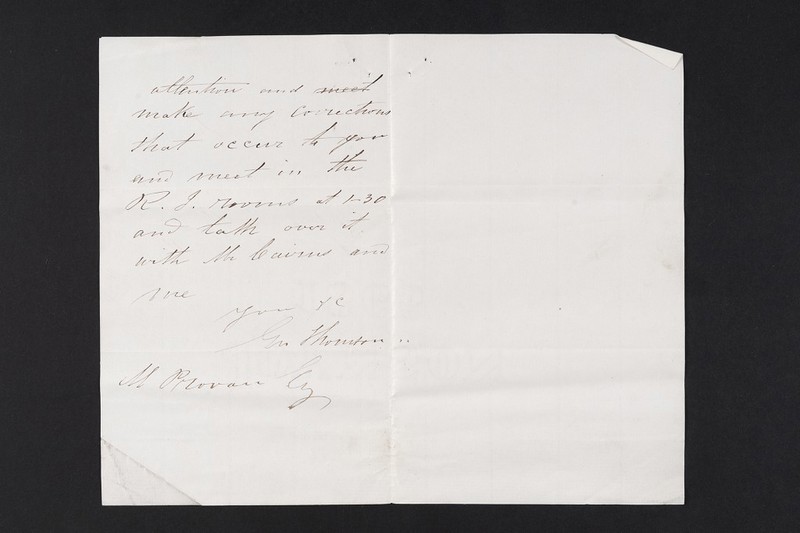 attention and meet
make any corrections
that occur to you
and meet in the
R. J. rooms at 1-30
and talk over it
with Mr Cairns and
me
your &c
Geo Thomson
M Provan